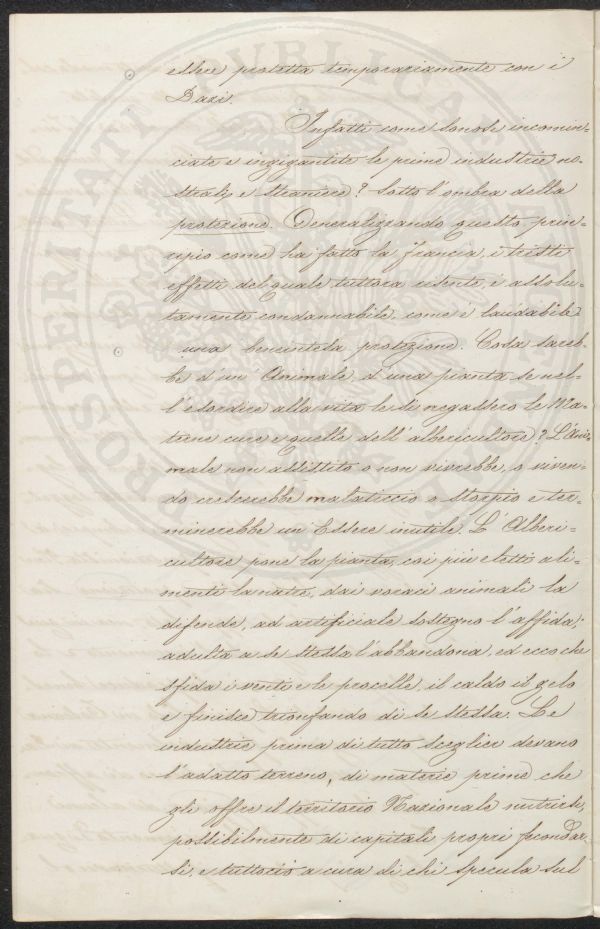 essere protetta temporariamente con i
Dazi.
Infatti come sonosi incomin-
ciate e ingigantite le prime industrie no-
strali e straniere? Sotto l'ombra della
protezione. Generalizzando questo prin-
cipio come ha fatto la Francia, i tristi
effetti del quale tuttora risente, è assolu-
tamente condannabile, come è laudabile
una benintesa protezione. Cosa sareb-
be d'un' Animale, d'una pianta se nel-
l'esordire alla vita le si negassero le Ma-
terne cure e quelle dell'albericultore? L'Ani-
male non assistito o non vivrebbe, o viven-
do crescerebbe malaticcio e storpio e ter-
minerebbe un Essere inutile. L'Alberi-
cultore pone la pianta, coi più eletti ali-
menti la nutre, dai voraci animali la
difende, ad artificiale sostegno l'affida;
adulta a se stessa l'abbandona, ed ecco che
sfida i venti e le procelle, il caldo il gelo
e finisce trionfando di se stessa. Le
industrie prima di tutto sceglier devono
l'adatto terreno, di materie prime che
gli offre il territorio Nazionale nutrirsi,
possibilmente di capitali propri fecondar-
si, e tuttociò a cura di chi specula sul
PROSPERITATI PUBLICAE